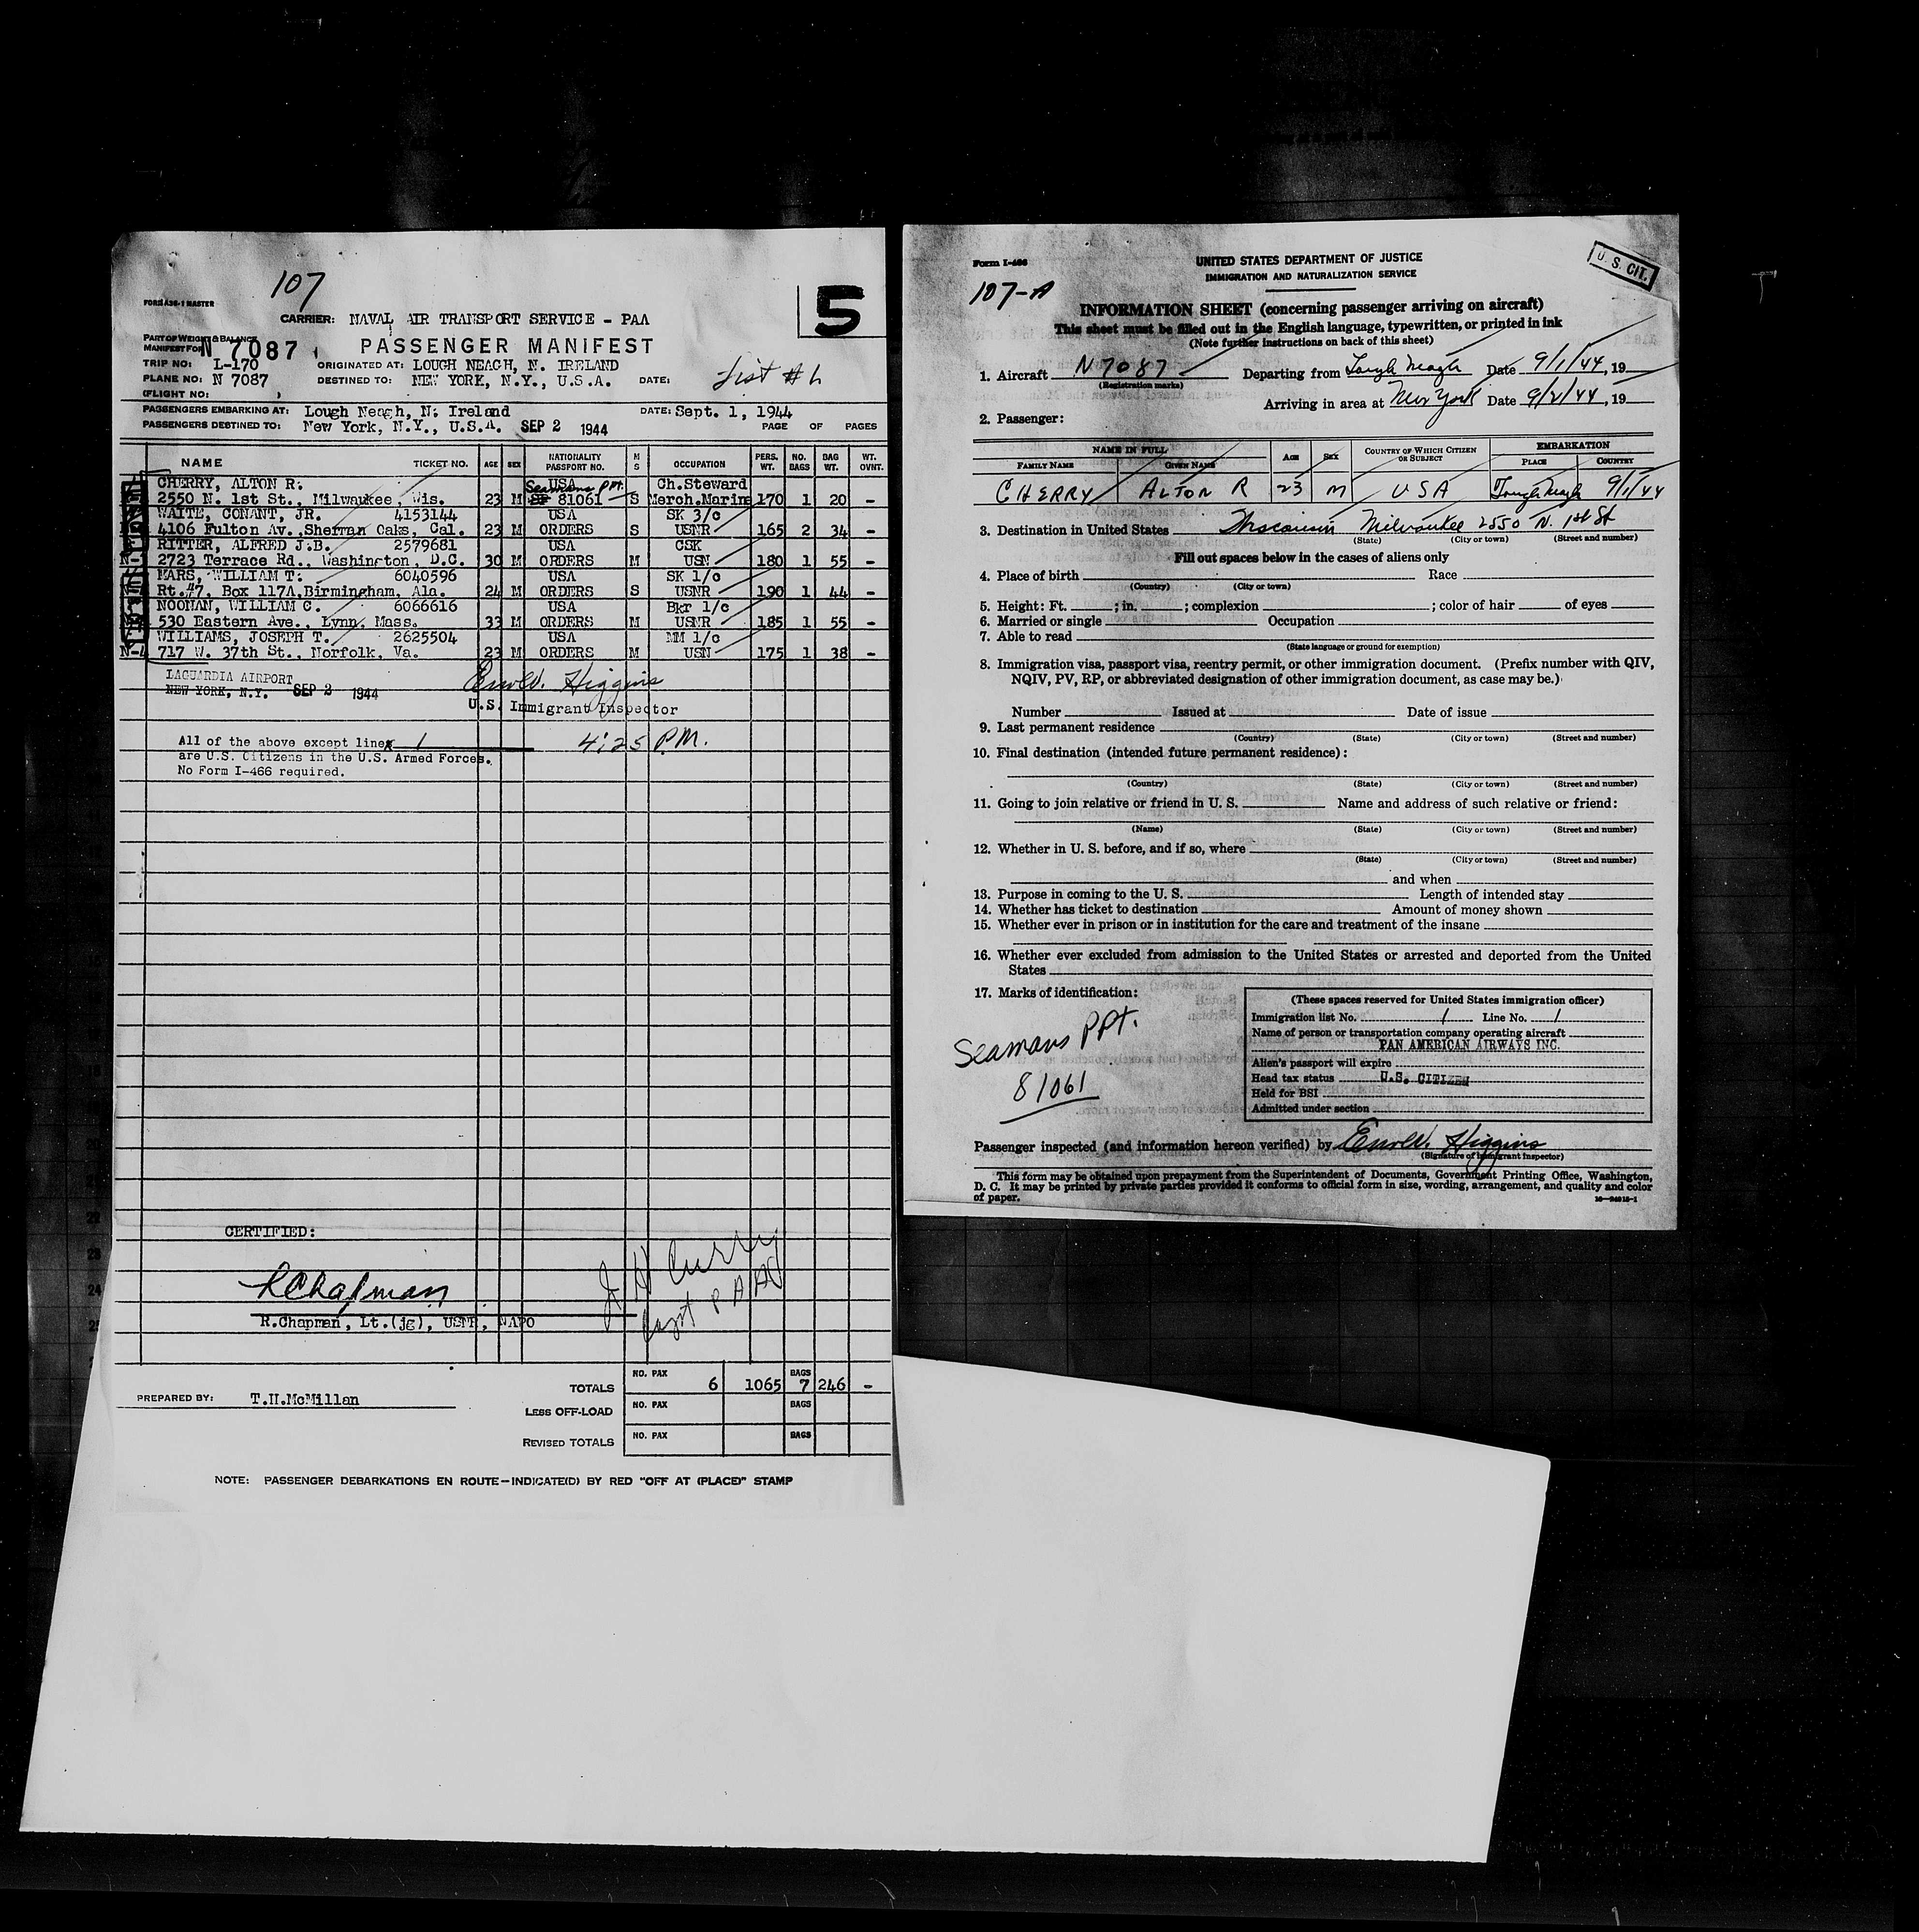 107
5
FORM A36-1 MASTER
CARRIER: NAVAL AIR TRANSPORT SERVICE - PAA
PART OF WEIGHT & BALANCE
MANIFEST FOR N 7087
PASSENGER MANIFEST
TRIP NO: L-170 ORIGINATED AT: LOUGH NEAGH, N. IRELAND
PLANE NO: N 7087 DESTINED TO: NEW YORK, N.Y., U.S.A. DATE:
(FLIGHT NO: )
PASSENGERS EMBARKING AT: Lough Neagh, N. Ireland DATE: Sept. 1, 1944
PASSENGERS DESTINED TO: New York, N.Y., U.S.A. SEP 2 1944 PAGE OF PAGES
NAME TICKET NO. AGE SEX NATIONALITY PASSPORT NO. M S OCCUPATION PERS. WT. NO. BAGS BAG WT. WT. OVNT.
CHERRY, ALTON R. USA Ch.Steward
Seamans PPt.
2550 N. 1st St., Milwaukee, Wis. 23 M 81061 S Merch.Marine 170 1 20 -
WAITE, CONANT, JR. 4153144 USA SK 3/c
4106 Fulton Av.,Sherman Oaks, Cal. 23 M ORDERS S USNR 165 2 34 -
RITTER, ALFRED J.B. 2579681 USA CSK
2723 Terrace Rd., Washington, D.C. 30 M ORDERS M USN 180 1 55 -
MARS, WILLIAM T. 6040596 USA SK 1/c
Rt.#7, Box 117A,Birmingham, Ala. 24 M ORDERS S USNR 190 1 44 -
NOONAN, WILLIAM C. 6066616 USA Bkr 1/c
530 Eastern Ave., Lynn, Mass. 33 M ORDERS M USNR 185 1 55 -
WILLIAMS, JOSEPH T. 2625504 USA MM 1/c
717 W. 37th St., Norfolk, Va. 23 M ORDERS M USN 175 1 38 -
LAGUARDIA AIRPORT
NEW YORK, N.Y. SEP 2 1944
Higgins
U.S. Immigrant Inspector
All of the above except line 1 4:25 P.M.
are U.S. Citizens in the U.S. Armed Forces.
No Form I-466 required.
CERTIFIED:
RChapman
J H Curry
R.Chapman, Lt.(jg), USNR, NAPO
TOTALS NO. PAX 6 1065 BAGS 7 246 -
PREPARED BY: T.H.McMillan
LESS OFF-LOAD NO. PAX BAGS
REVISED TOTALS NO. PAX BAGS
NOTE: PASSENGER DEBARKATIONS EN ROUTE—INDICATE(D) BY RED "OFF AT (PLACE)" STAMP
Form I-466
UNITED STATES DEPARTMENT OF JUSTICE
IMMIGRATION AND NATURALIZATION SERVICE
U. S. CIT.
107-A
INFORMATION SHEET (concerning passenger arriving on aircraft)
This sheet must be filled out in the English language, typewritten, or printed in ink
(Note further instructions on back of this sheet)
1. Aircraft N 7087 Departing from Lough Neagh Date 9/1/44, 19
(Registration marks)
Arriving in area at New York Date 9/2/44, 19
2. Passenger:
NAME IN FULL AGE SEX COUNTRY OF WHICH CITIZEN OR SUBJECT EMBARKATION
FAMILY NAME GIVEN NAME PLACE COUNTRY
CHERRY ALTON R 23 M USA Lough Neagh 9/1/44
3. Destination in United States Wisconsin Milwaukee 2550 N. 1st St
(State) (City or town) (Street and number)
Fill out spaces below in the cases of aliens only
4. Place of birth Race
(Country) (City or town)
5. Height: Ft. ; in. ; complexion ; color of hair of eyes
6. Married or single Occupation
7. Able to read
(State language or ground for exemption)
8. Immigration visa, passport visa, reentry permit, or other immigration document. (Prefix number with QIV,
NQIV, PV, RP, or abbreviated designation of other immigration document, as case may be.)
Number Issued at Date of issue
9. Last permanent residence
(Country) (State) (City or town) (Street and number)
10. Final destination (intended future permanent residence):
(Country) (State) (City or town) (Street and number)
11. Going to join relative or friend in U. S. Name and address of such relative or friend:
(Name) (State) (City or town) (Street and number)
12. Whether in U. S. before, and if so, where
(State) (City or town) (Street and number)
and when
13. Purpose in coming to the U. S. Length of intended stay
14. Whether has ticket to destination Amount of money shown
15. Whether ever in prison or in institution for the care and treatment of the insane
16. Whether ever excluded from admission to the United States or arrested and deported from the United
States
17. Marks of identification:
Seamans PPt.
81061
(These spaces reserved for United States immigration officer)
Immigration list No. 1 Line No. 1
Name of person or transportation company operating aircraft
PAN AMERICAN AIRWAYS INC.
Alien's passport will expire
Head tax status U.S. CITIZEN
Held for BSI
Admitted under section
Passenger inspected (and information hereon verified) by Higgins
(Signature of immigrant inspector)
This form may be obtained upon prepayment from the Superintendent of Documents, Government Printing Office, Washington,
D. C. It may be printed by private parties provided it conforms to official form in size, wording, arrangement, and quality and color
of paper.